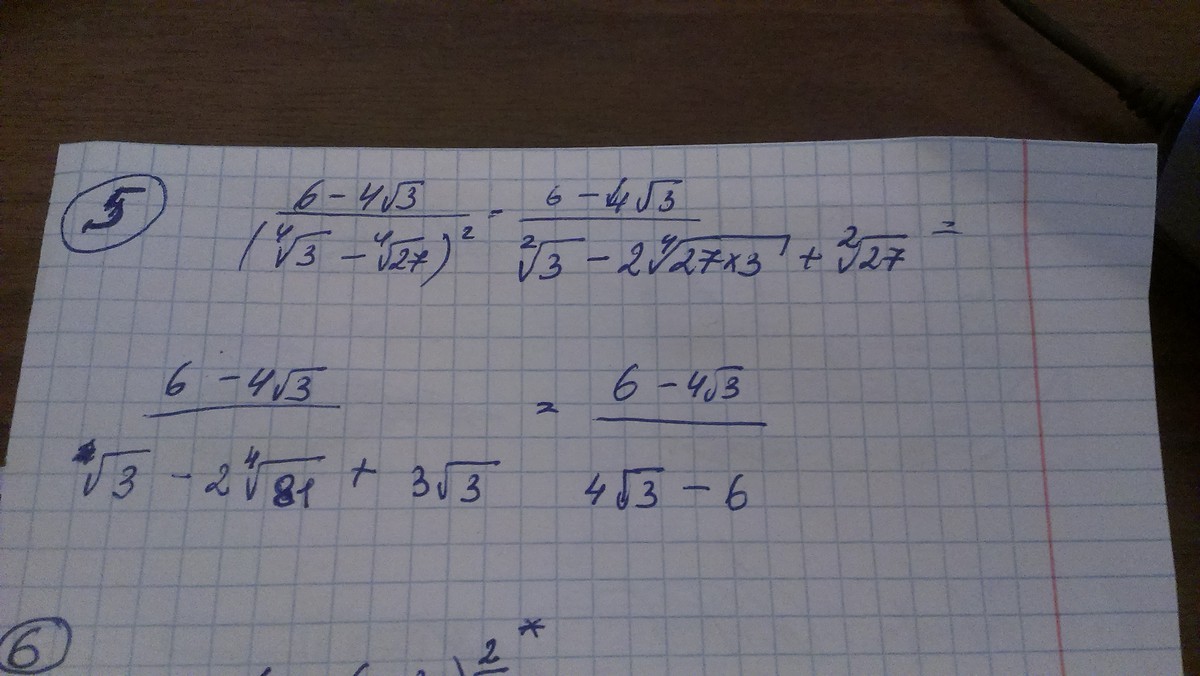 5
6 - 4√3 / (⁴√3 - ⁴√27)² = 6 - 4√3 / ²√3 - 2⁴√27×3 + ²√27 =
6 - 4√3 / √3 - 2⁴√81 + 3√3 = 6 - 4√3 / 4√3 - 6
6
2 *